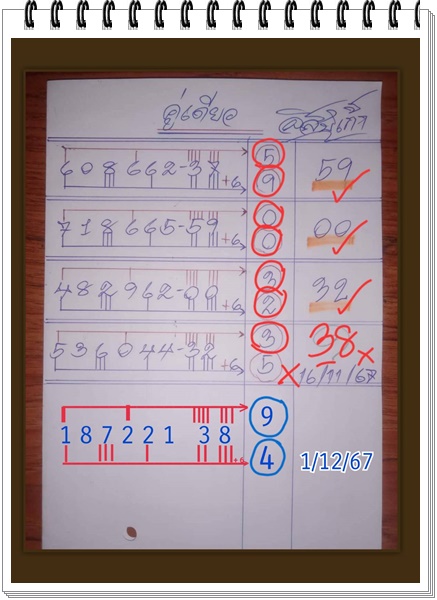 คู่เดียว
608 662-37 +6 5 9 59
718 665-59 +6 0 0 00
482 962-00 +6 3 2 32
536 044-32 +6 3 5 38
16/11/67
187221 38 +6 9 4 1/12/67